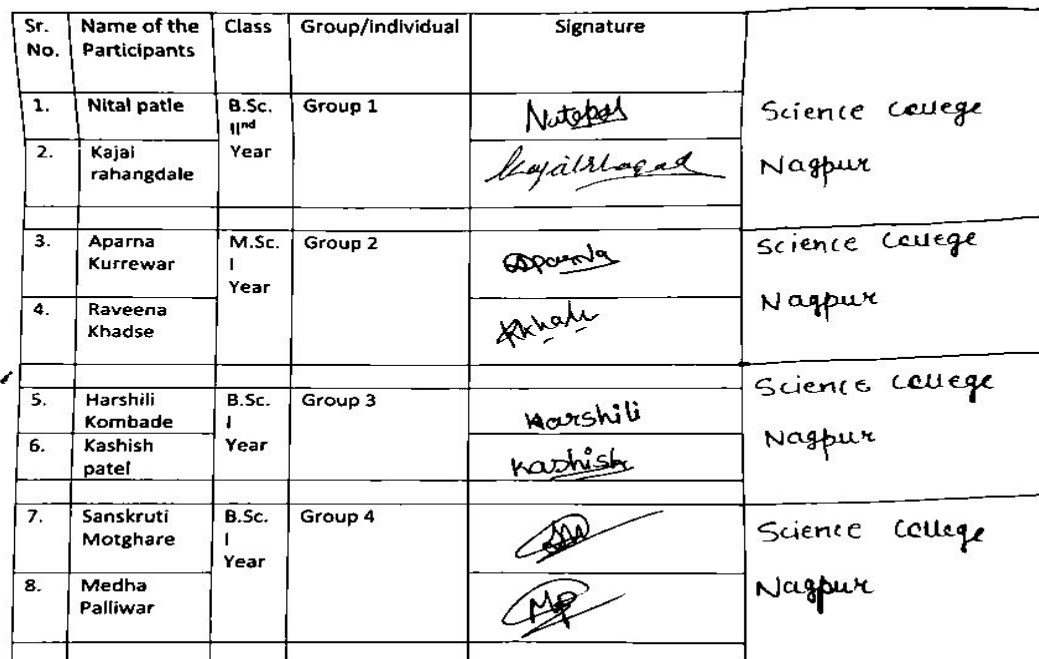 Sr. No. Name of the Participants Class Group/Individual Signature
1. Nital patle B.Sc. IInd Year Group 1 Science College
2. Kajai rahangdale Nagpur
3. Aparna Kurrewar M.Sc. I Year Group 2 Aparna Science College
4. Raveena Khadse Nagpur
5. Harshili Kombade B.Sc. I Year Group 3 Harshili Science College
6. Kashish patel Kashish Nagpur
7. Sanskruti Motghare B.Sc. I Year Group 4 Science College
8. Medha Palliwar MP Nagpur